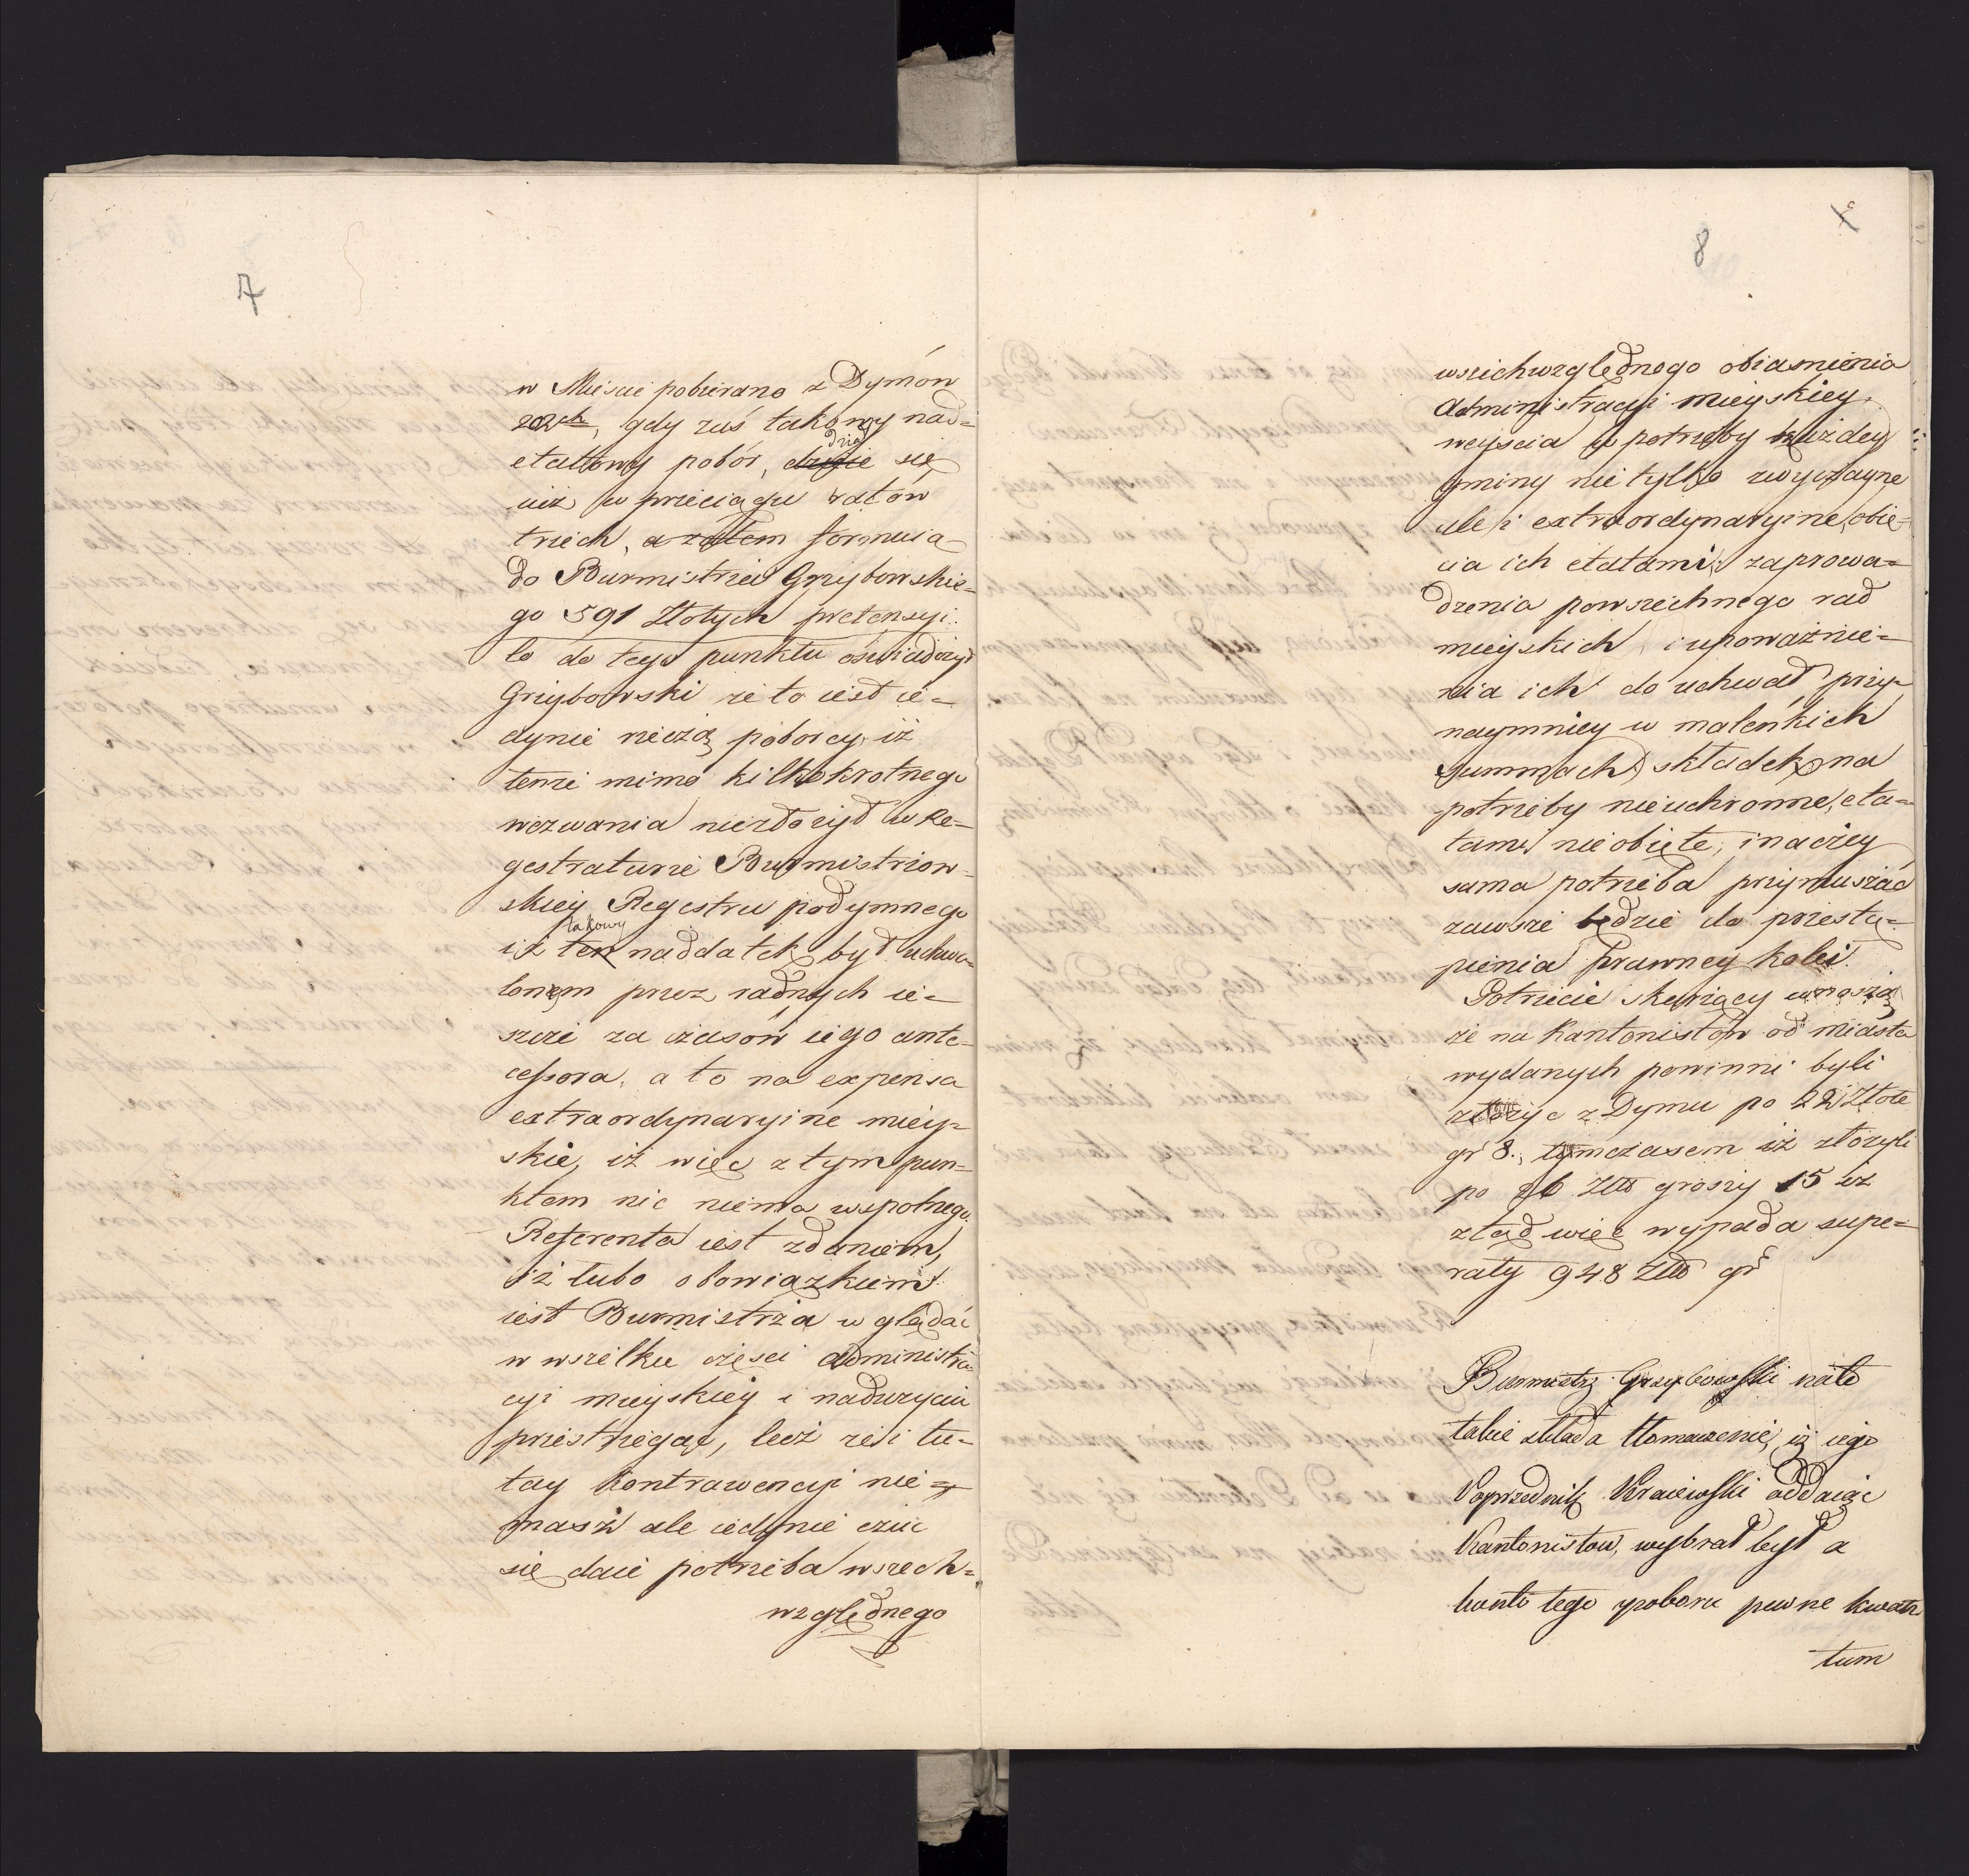 7
w Mieście pobierano z Dymów
202ch, gdy zaś takowy nad=
etatowy pobór, dział się
iuż w przeciągu ratów
trzech, a zatem formuia
do Burmistrza Grzybowskie=
go 591 Złotych pretensyi.
Co do tego punktu oświadczył
Grzybowski że to iest ie=
dynie rzeczą poborcy, iż
tenże mimo kilkokrotnego
wezwania niezłożył w Re=
gestraturze Burmistrzow=
skiey Regestru podymnego
takowy
iż ten naddatek był uchwa=
lonem przez radnych ie=
szcze za czasów iego ante=
cessora, a to na expensa
extraordynaryine miey=
skie, iż więc z tym pun=
ktem nic niema wspolnego.
Referenta iest zdaniem,
iż lubo obowiązkiem
iest Burmistrza wglądać
w wszelkie części administra=
cyi mieyskiey i nadużyciu
przestrzegać, lecz że i tu=
tay kontrawencyi nie=
masz ale iedynie czuć
się daie potrzeba wszech=
względnego
8
wszechwzględnego obiasnienia
Administracyi mieyskiey,
weyścia w potrzeby każdey
gminy nie tylko zwyczayne
ale i extraordynaryine, obię=
cia ich etatami, zaprowa=
dzenia powszechnego rad
mieyskich, i upoważnie=
nia ich do uchwał przy=
naymniey w maleńkich
summach składek na
potrzeby nieuchronne, eta=
tami nie obięte, inaczey
sama potrzeba przymuszać
zawsze będzie do przestą=
pienia prawney kolei.
Potrzecie skarżący wnoszą
że na Kantonistów od miasta
wydanych powinni byli
złożyć z Dymu po 22 Złote
gr 8., tymczasem iż złożyli
po 26 Złł groszy 15 iż
ztąd więc wypada supe=
raty 948 Złł gr
Burmistrz Grzybowski na to
takie składa tłomaczenie, iż iego
Poprzednik Kraiewski oddaiąc
Kantonistow, wybrał był a
konto tego poboru pewne kwan
tum